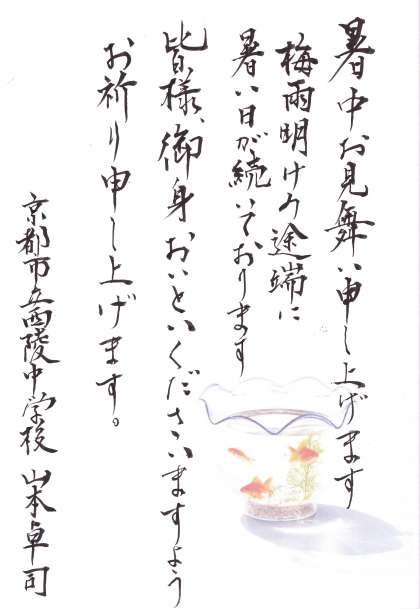 暑中お見舞い申し上げます
梅雨明けの途端に
暑い日が続いております
皆様、御身おいといくださいますよう
お祈り申し上げます。
京都市立西陵中学校 山本卓司